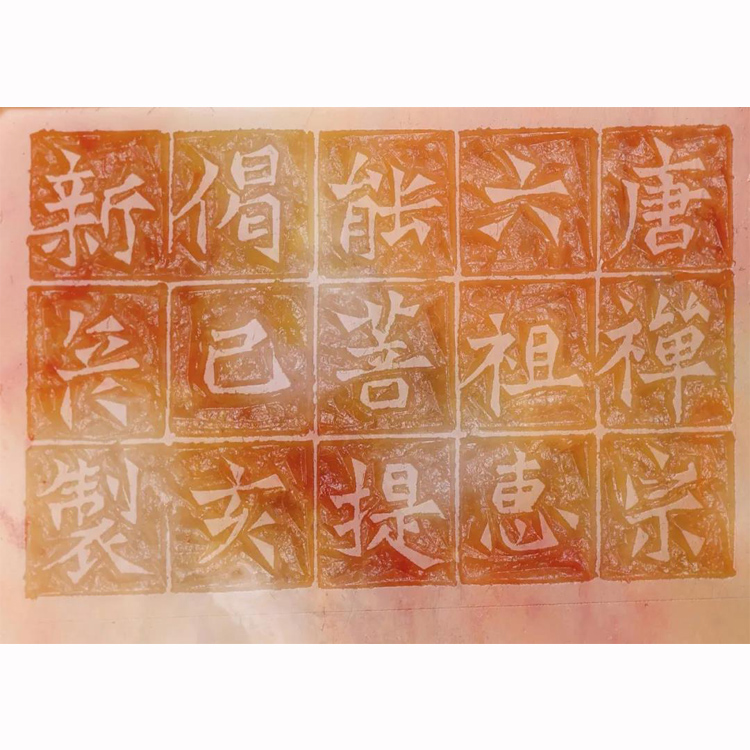 唐禪宗
六祖惠
能菩提
偈己亥
新兵製